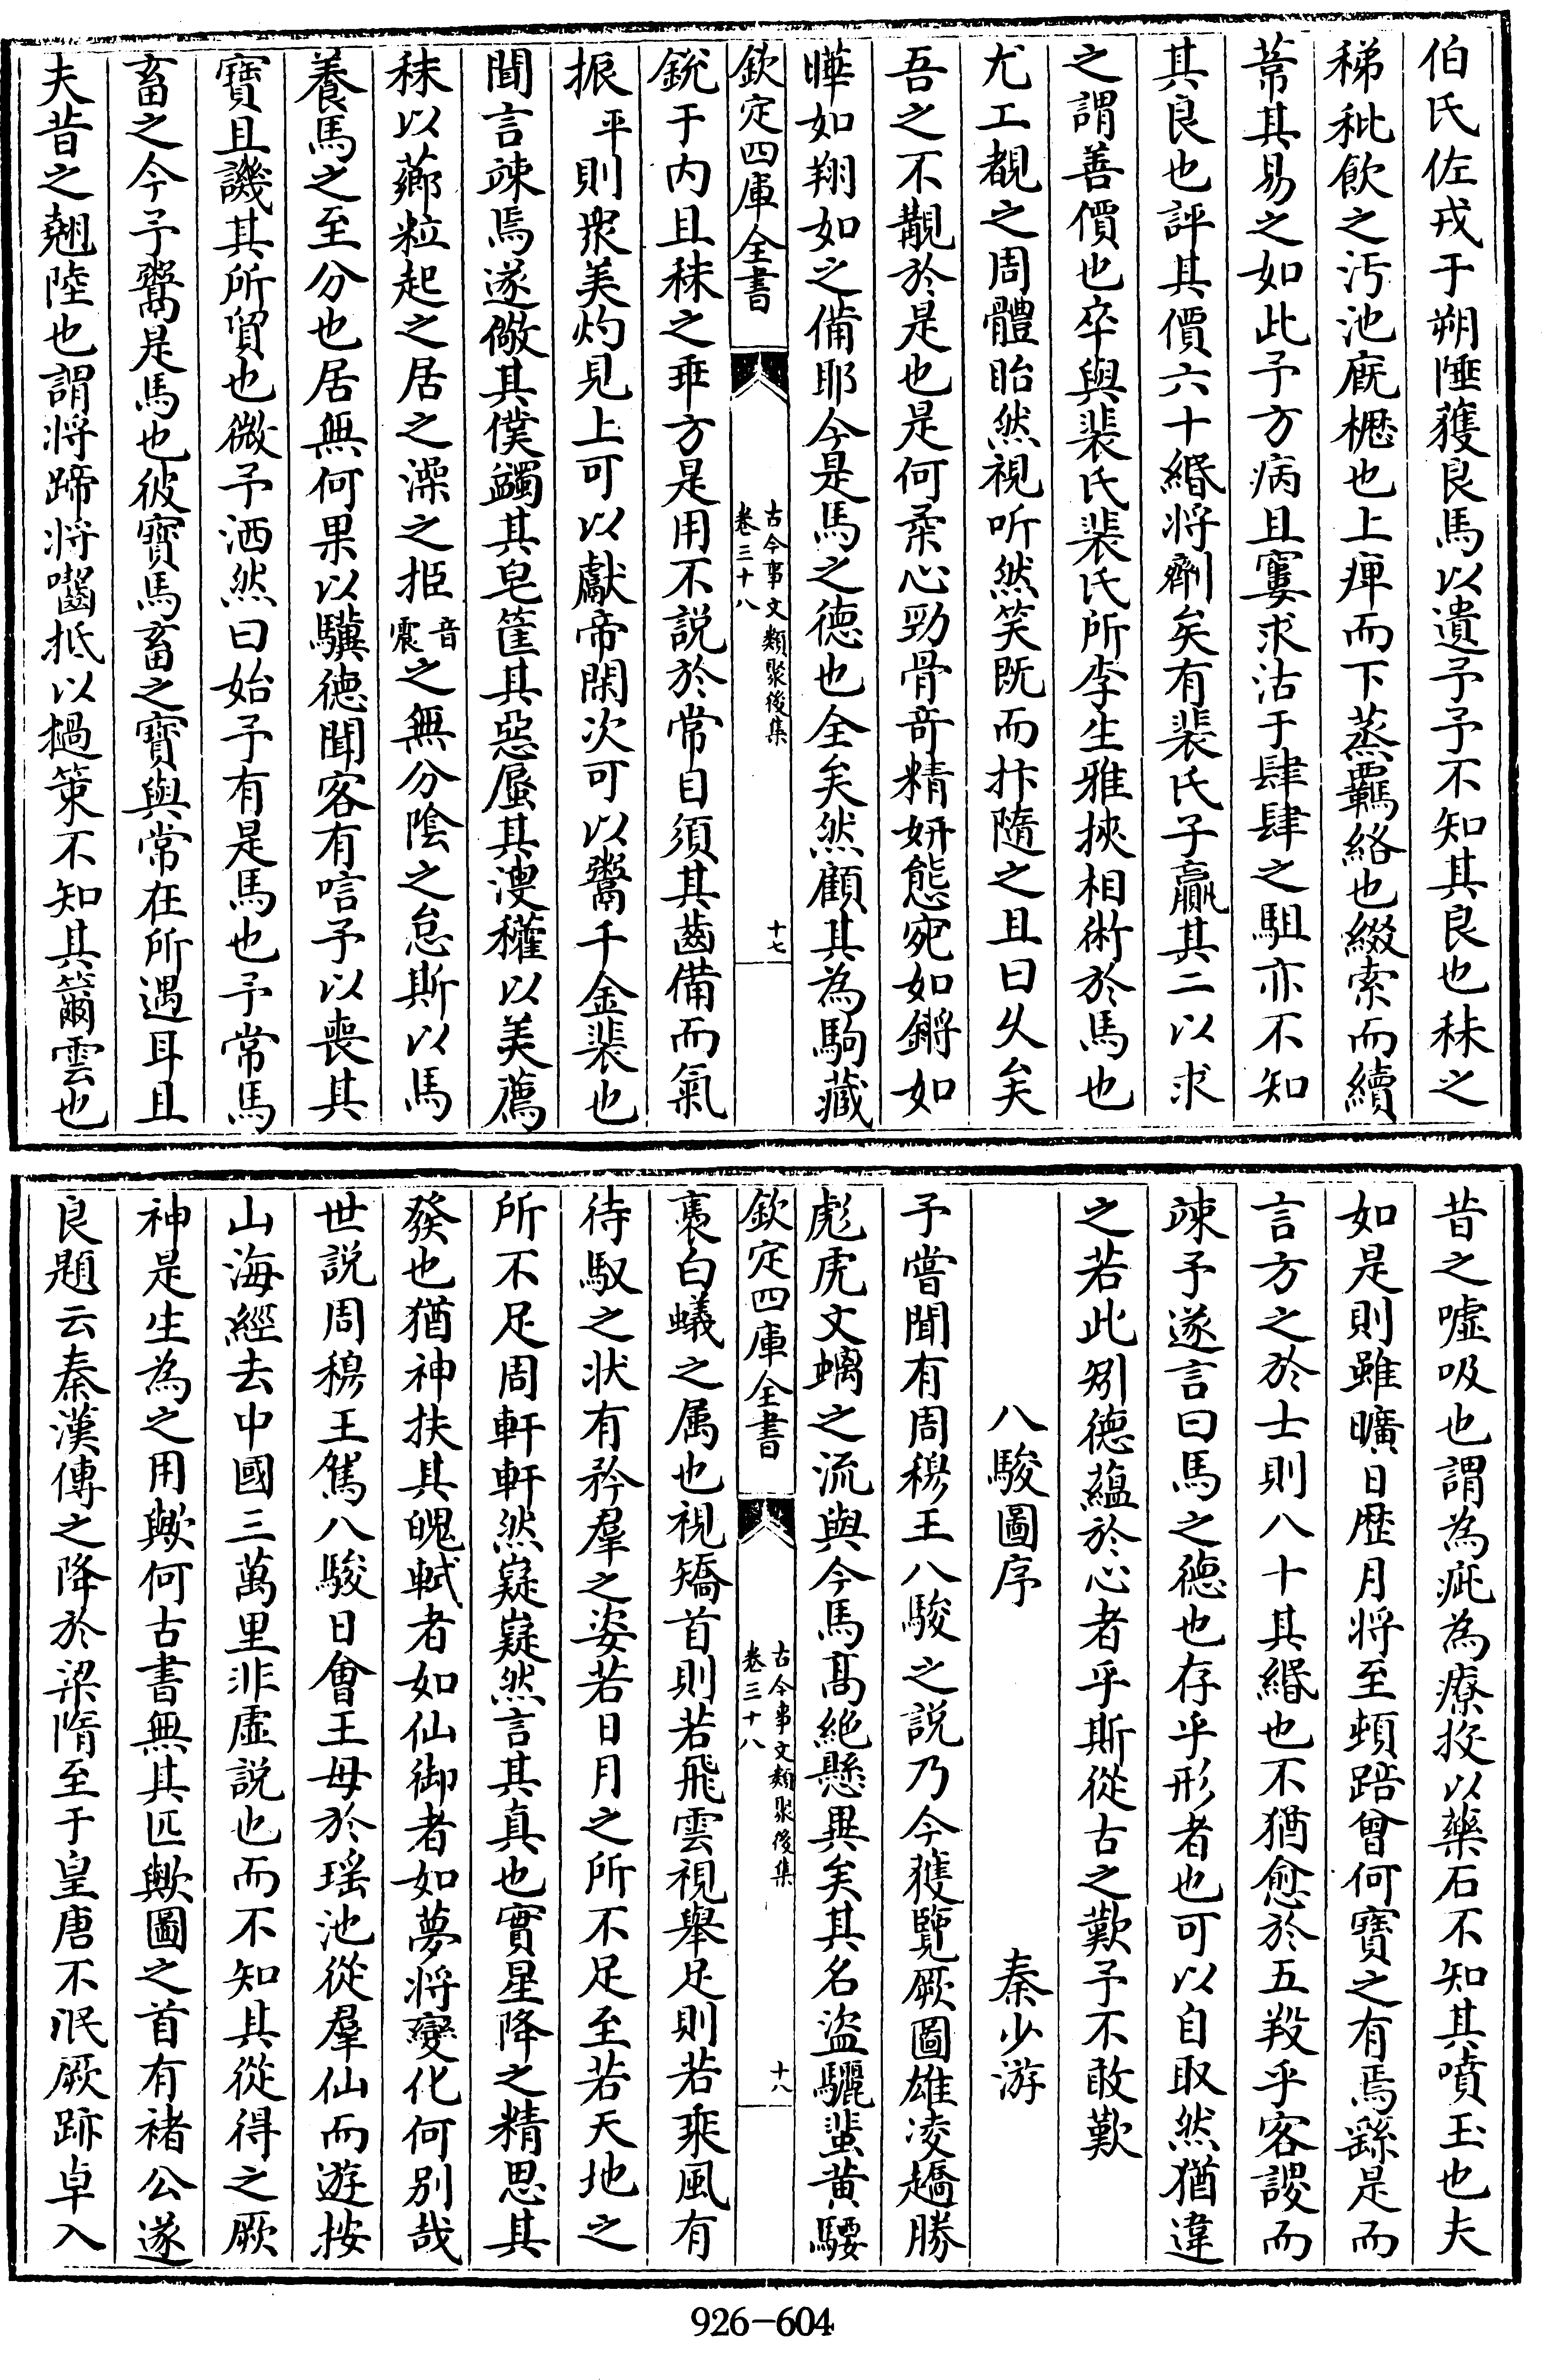 伯氏佐戎于朔陲獲良馬以遺予予不知其良也秣之
稊秕飲之汚池廐櫪也上痺而下蒸羈絡也綴索而續
菷其易之如此予方病且窶求沽于肆肆之駔亦不知
其良也評其價六十緡將劑矣有裴氏子贏其二以求
之謂善價也卒與裴氏裴氏所李生雅挾相術於馬也
尤工覩之周體眙然視听然笑既而抃隨之且曰久矣
吾之不覯於是也是何柔心勁骨竒精妍態宛如鏘如
曄如翔如之備耶今是馬之德也全矣然顧其為駒藏
欽定四庫全書
古今事文類聚後集
卷三十八
十七
銳于内且秣之乖方是用不說於常目須其齒備而氣
振平則衆美灼見上可以獻帝閑次可以鬻千金裴也
聞言竦焉遂儆其僕蠲其皂筐其惡蜃其溲䆉以美薦
秣以薌粒起之居之澡之挋音震之無分陰之怠斯以馬
養馬之至分也居無何果以驥德聞客有唁予以喪其
寶且譏其所貿也微予洒然曰始予有是馬也予常馬
畜之今予鬻是馬也彼寶馬畜之寶與常在所遇耳且
夫昔之翹陸也謂將蹄將囓抵以檛策不知其籋雲也
昔之噓吸也謂為疵為療投以藥石不知其噴玉也夫
如是則雖曠日歴月將至頓踣曾何寶之有焉繇是而
言方之於士則八十其緡也不猶愈於五羖乎客謖而
竦予遂言曰馬之德也存乎形者也可以自取然猶違
之若此矧德藴於心者乎斯從古之歎予不敢歎
八駿圖序　秦少游
予嘗聞有周穆王八駿之説乃今獲覽厥圖雄凌趫勝
彪虎文螭之流與今馬髙絶懸異矣其名盜驪蜚黄騕
褭白蟻之属也視矯首則若飛雲視舉足則若乘風有
待馭之状有矜羣之姿若日月之所不足至若天地之
所不足周軒軒然嶷嶷然言其真也實星降之精思其
發也猶神扶其魄軾者如仙御者如夢將變化何别哉
世説周穆王駕八駿日會王母於瑶池從羣仙而遊按
山海經去中國三萬里非虚説也而不知其從得之厥
神是生為之用歟何古書無其匹歟圖之首有褚公遂
良題云秦漢傳之降於梁隋至于皇唐不泯厥跡卓入
欽定四庫全書
古今事文類聚後集
卷三十八
十八
926-604